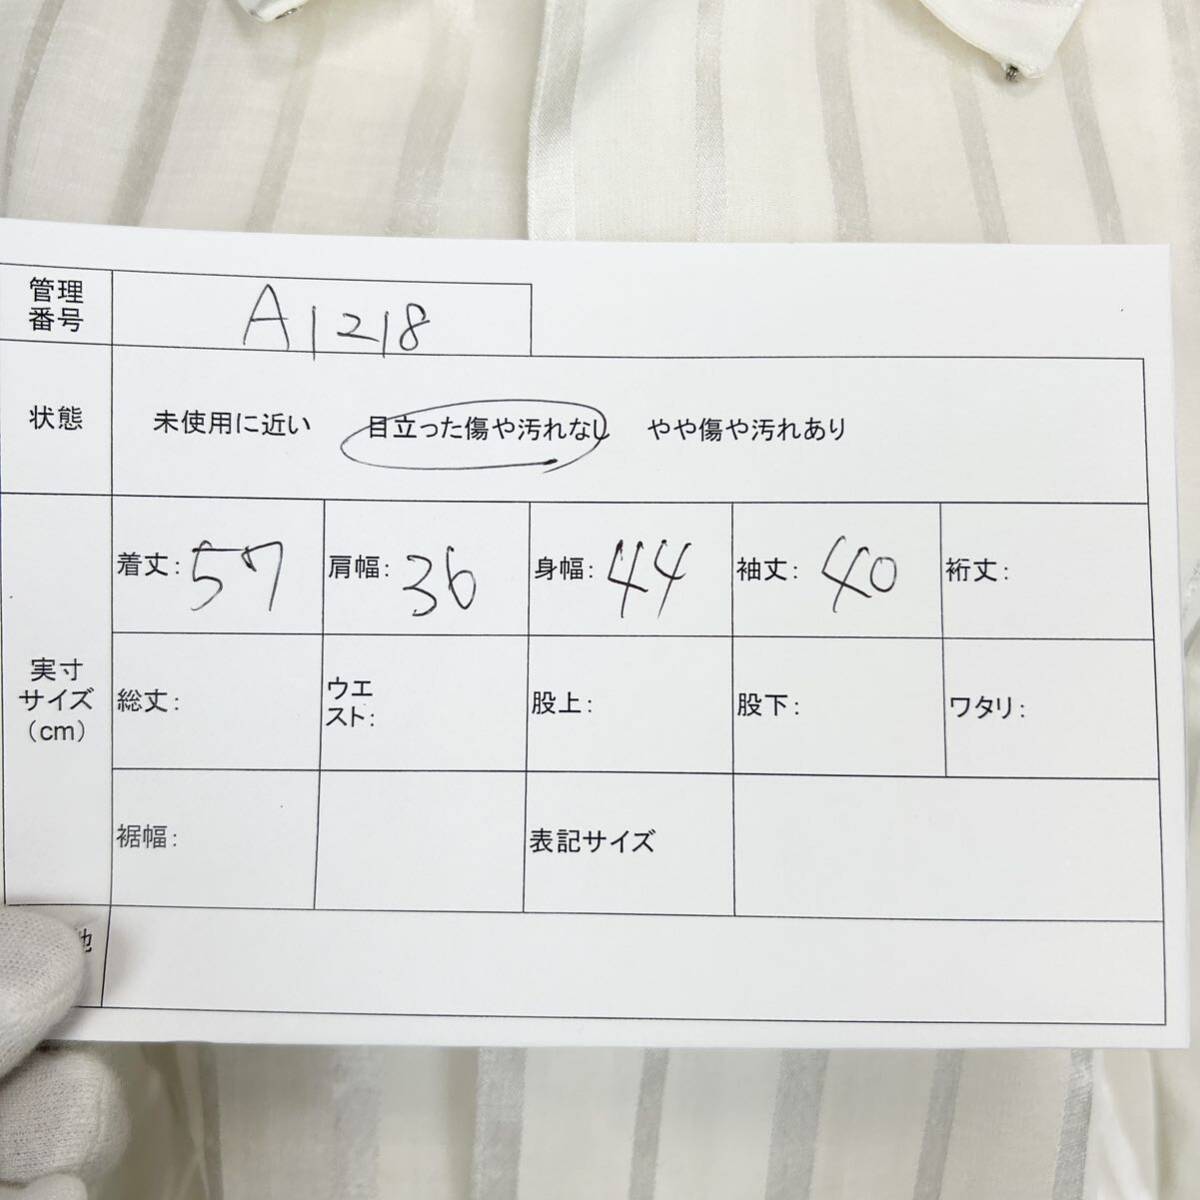 管理
番号
A1218
状態
未使用に近い 目立った傷や汚れなし やや傷や汚れあり
実寸
サイズ
(cm)
着丈: 57 肩幅: 36 身幅: 44 袖丈: 40 裄丈:
総丈: ウエ
スト: 股上: 股下: ワタリ:
裾幅: 表記サイズ
他